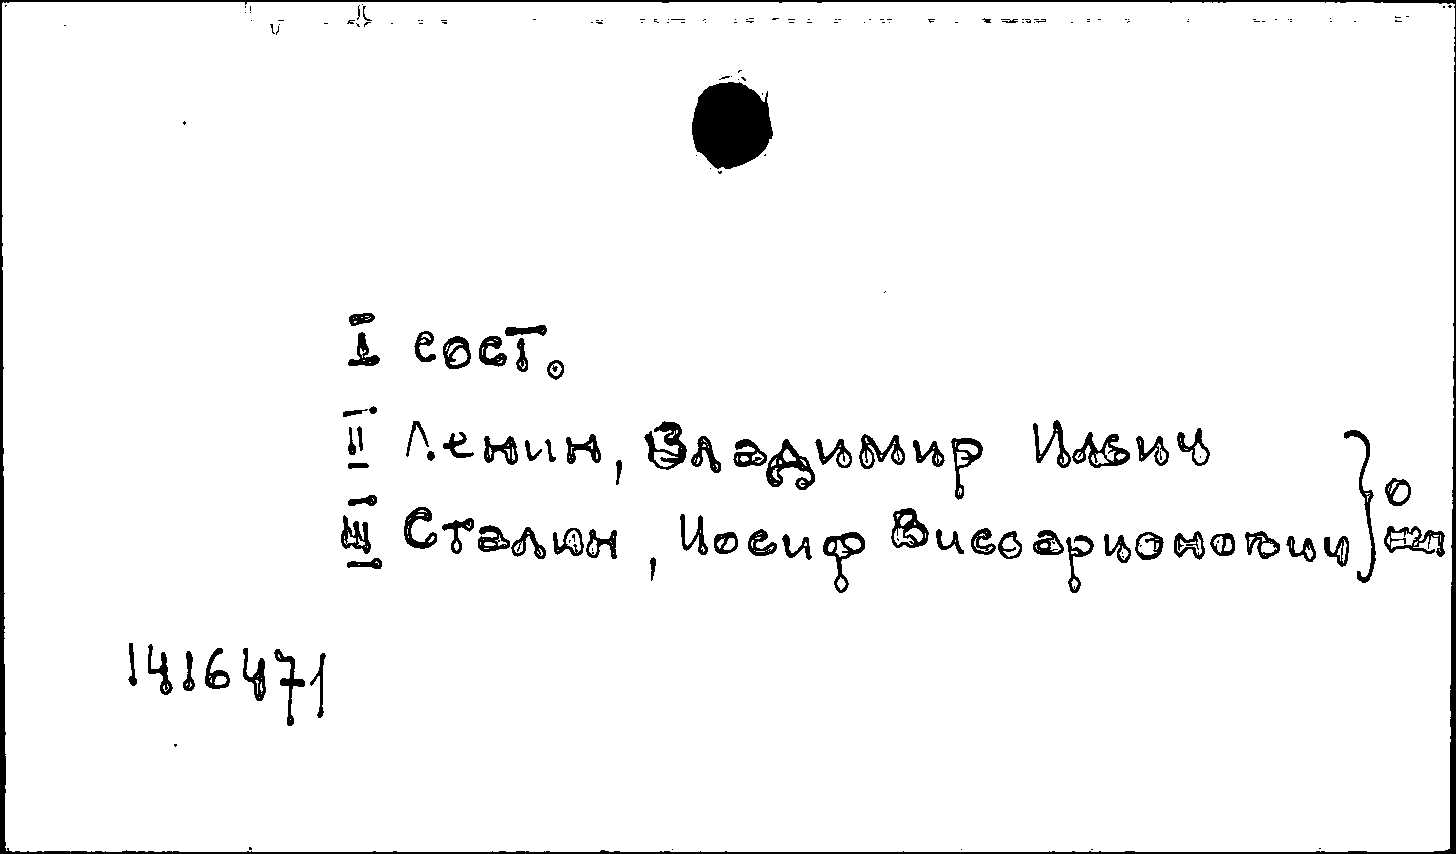 I сост.
II Ленин, Владимир Ильич
III Сталин, Иосиф Виссарионович } о
1416471